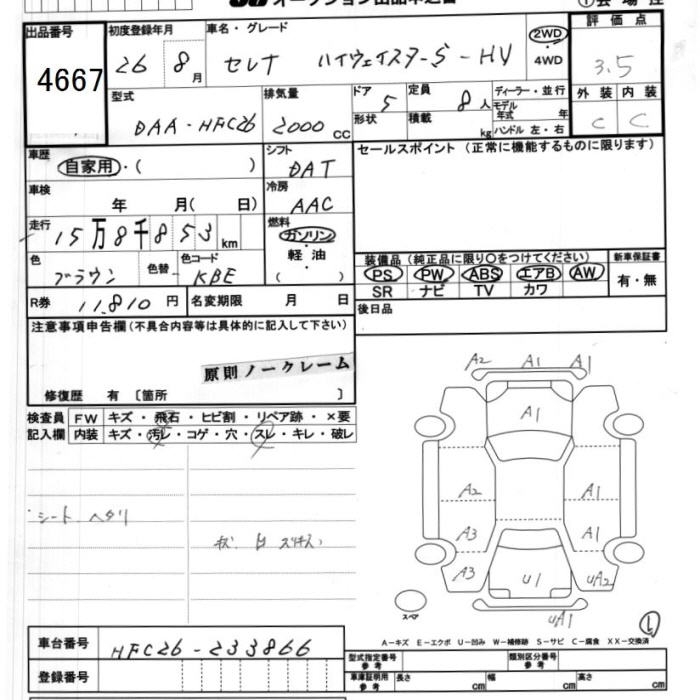 オークション出品申込書
出品番号 初度登録年月 車名・グレード 評価点
4667 26 8月 セレナ ハイウェイスターS-HV 2WD・4WD 3.5
型式 排気量 ドア 定員 ディーラー・並行 外装 内装
DAA-HFC26 2000cc 5 8人 モデル年式 年 C C
形状 積載 kg ハンドル 左・右
車歴 シフト セールスポイント (正常に機能するものに限ります)
自家用・( ) DAT
車検 冷房
年 月( 日) AAC
走行 燃料
15万8千853km ガソリン・軽油
色 色替 色コード ( )
ブラウン KBE
装備品 (純正品に限り○をつけてください) 新車保証書
PS PW ABS エアB AW 有・無
SR ナビ TV カワ
R券 11,810円 名変期限 月 日 後日品
注意事項申告欄(不具合内容等は具体的に記入して下さい)
原則ノークレーム
修復歴 有 〔箇所 〕
検査員 FW キズ・飛石・ヒビ割・リペア跡・×要
記入欄 内装 キズ・汚レ・コゲ・穴・スレ・キレ・破レ
シート ヘタリ
A2 A1 A1
A1
A2 A1
A3 A1
A3 U1 UA2
UA1
スペア
A－キズ E－エクボ U－凹み W－補修跡 S－サビ C－腐食 XX－交換済
車台番号 HFC26-233866
型式指定番号 参考 類別区分番号 参考
登録番号 車庫証明用 参考 長さ cm 幅 cm 高さ cm